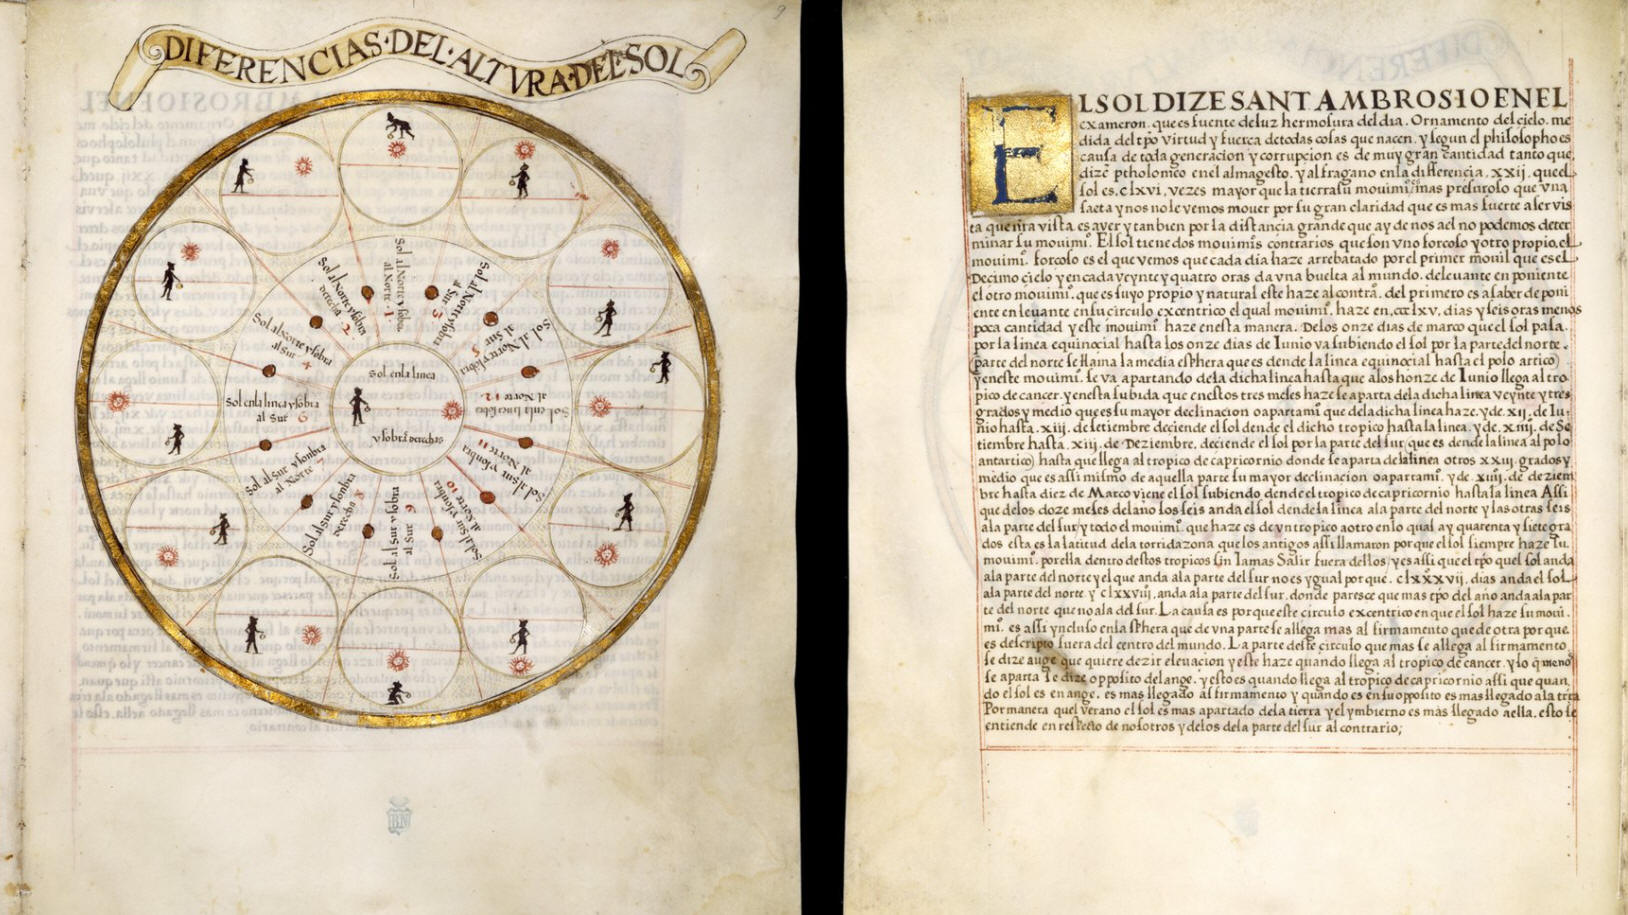 9
DIFERENCIAS·DEL·ALTVRA·DEL·SOL
Sol al Norte y sobra
al Norte .1.
Sol al Norte y sobra
derecha 2
Sol al Norte y sobra
al Sur 3
Sol al Norte y sobra
al Sur 4
Sol al Norte y sobra
al Sur 5
Sol en la linea y sobra
al Sur 6
Sol al sur y sonbra
al Norte 7
Sol al Sur y sonbra
derecha 8
Sol al Sur y sobra
al Sur 9
Sol al Sur y sonbra
al Norte 10
Sol al Sur y sonbra
al Norte 11
Sol en la linea y sobra
al Norte 12
Sol en la linea
y sobra derechas
BN
EL SOL DIZE SANT AMBROSIO EN EL
exameron. que es fuente de luz hermosura del dia. Ornamento del cielo. me
dida del tpō virtud y fuerça de todas cosas que nacen. y segun el philosopho es
causa de toda generacion y corrupcion es de muy gran cantidad tanto que.
dize ptholomeo en el almagesto. y alfragano en la differencia. xxij. que el
sol es. clxvi. vezes mayor que la tierra su mouimi.º es mas presurolo que vna
saeta y nos no le vemos mouer por su gran claridad que es mas fuerte a ser vis
ta que nr̄a vista. es a ver y tanbien por la distancia grande que ay de nos a el no podemos deter
minar su mouimi.º El sol tiene dos mouimiº̄s contrarios que son vno forçoso y otro propio. el
mouimi.º forçoso es el que vemos que cada dia haze arrebatado por el primer mouil que es el
Decimo cielo y en cada veynte y quatro oras da vna buelta al mundo. de leuante en poniente
el otro mouimi.º que es suyo propio y natural este haze al contrā. del primero es a saber de poni
ente en leuante en su circulo excentrico el qual mouimi.º haze en. ccclxv. dias y seis oras menos
poca cantidad y este mouimi.º haze en esta manera. De los onze dias de março que el sol pasa.
por la linea equinocial hasta los onze dias de Iunio va subiendo el sol por la parte del norte.
(parte del norte se llama la media esphera que es dende la linea equinocial hasta el polo artico)
y en este mouimi.º se va apartando de la dicha linea hasta que a los honze de Iunio llega al tro
pico de cancer. y en esta subida que en estos tres meses haze se aparta de la dicha linea veynte y tres
grados y medio que es su mayor declinacion o apartami.º que de la dicha linea haze. y de. xij. de Iu
nio hasta. xiij. de setiembre deciende el sol dende el dicho tropico hasta la linea. y de. xiiij. de Se
tiembre hasta. xiij. de Deziembre. deciende el sol por la parte del sur (que es dende la linea al polo
antartico) hasta que llega al tropico de capricornio donde se aparta de la linea otros. xxiij. grados y
medio que es assi mismo de aquella parte su mayor declinacion o apartami.º y de. xiiij. de deziem
bre hasta diez de Março viene el sol subiendo dende el tropico de capricornio hasta la linea Assi
que de los doze meses del año los seis anda el sol dende la linea a la parte del norte y las otras seis
a la parte del sur. y todo el mouimi.º que haze es de vn tropico a otro en lo qual ay quarenta y siete gra
dos esta es la latitud de la torridazona que los antigos assi llamaron por que el sol siempre haze su.
mouimi.º por ella dentro destos tropicos sin Iamas Salir fuera dellos. y es assi que el tpō que el sol anda
a la parte del norte y el que anda a la parte del sur no es ygual por que. clxxxvij. dias anda el sol
a la parte del norte y clxxviij. anda a la parte del sur. donde paresce que mas tpō del año anda a la par
te del norte que no a la del sur. La causa es porque este circulo excentrico en que el sol haze su moui
mi.º es assi ynciuso en la sphera que de vna parte se allega mas al firmamento que de otra por que.
es descripto fuera del centro del mundo. La parte deste circulo que mas se allega al firmamento
se dize auge que quiere dezir eleuacion y este haze quando llega al tropico de cancer. y lo q̄ menos
se aparta se dize opposito del ange. y esto es quando llega al tropico de capricornio assi que quan
do el sol es en ange. es mas llegado al firmamento y quando es en su opposito es mas llegado a la trr̄a
Por manera que l verano el sol es mas apartado de la tierra y el ymbierno es mas llegado a ella. esto se
entiende en respecto de nosotros y de los de la parte del sur al contrario;